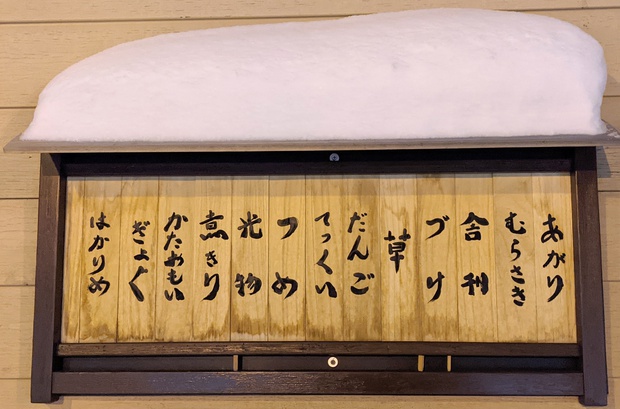 あがり
むらさき
舎利
づけ
草
だんご
てっくい
つめ
光物
煮きり
かたおもい
ぎょく
はかりめ